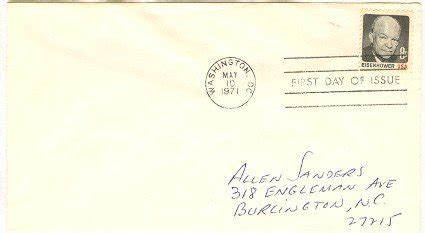 8c
EISENHOWER USA
WASHINGTON, DC
MAY
10
1971
FIRST DAY OF ISSUE
ALLEN SANDERS
318 ENGLEMAN AVE
BURLINGTON, N.C.
27215